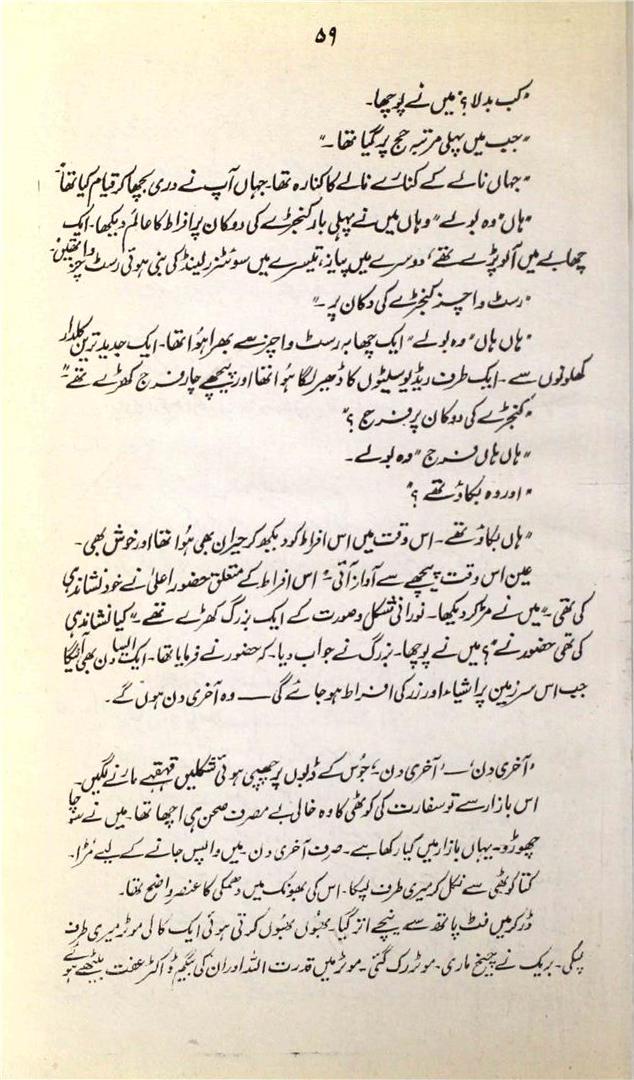 ۵۹
"کب بدلا؟" میں نے پوچھا۔
"جب میں پہلی مرتبہ حج پر گیا تھا۔"
"جہاں نالے کے کنارے نالے کا کنارہ تھا۔ جہاں آپ نے دری بچھا کر قیام کیا تھا"
"ہاں" وہ بولے "وہاں میں نے پہلی بار کنجڑے کی دوکان پر افراط کا عالم دیکھا۔ ایک
چھابے میں آلو پڑے تھے، دوسرے میں پیاز، تیسرے میں سوئٹزرلینڈ کی بنی ہوئی رسٹ واچز تھیں۔
"رسٹ واچز کنجڑے کی دکان پر۔"
"ہاں ہاں" وہ بولے "ایک چھابہ رسٹ واچز سے بھرا ہوا تھا۔ ایک جدید ترین کلدار
کھلونوں سے۔ ایک طرف ریڈیو سیٹوں کا ڈھیر لگا ہوا تھا اور پیچھے چار فرج کھڑے تھے"
"کنجڑے کی دوکان پر فرج؟"
"ہاں ہاں فرج" وہ بولے۔
"اور وہ بکاؤ تھے؟"
"ہاں بکاؤ تھے۔ اس وقت میں اس افراط کو دیکھ کر حیران بھی ہوا تھا اور خوش بھی۔
عین اس وقت پیچھے سے آواز آئی۔ اس افراط کے متعلق حضور اعلیٰ نے خود نشاندہی
کی تھی۔ "میں نے مڑ کر دیکھا۔ نورانی شکل و صورت کے ایک بزرگ کھڑے تھے۔" کیا نشاندہی
کی تھی حضور نے؟" میں نے پوچھا۔ بزرگ نے جواب دیا۔ کہ حضور نے فرمایا تھا۔ ایک ایسا دن بھی آئیگا
جب اس سرزمین پر اشیاء اور زر کی افراط ہو جائے گی — وہ آخری دن ہوں گے۔
'آخری دن' — 'آخری دن۔' جُوس کے ڈبوں پر چھپی ہوئی شکلیں قہقہے مارنے لگیں۔
اس بازار سے تو سفارت کی کوٹھی کا وہ خالی بے مصرف صحن ہی اچھا تھا۔ میں نے سوچا
چھوڑو۔ یہاں بازار میں کیا رکھا ہے۔ صرف آخری دن۔ میں واپس جانے کے لیے مُڑا۔
کتا کوٹھی سے نکل کر میری طرف لپکا۔ اس کی بھونک میں دھمکی کا عنصر واضح تھا۔
ڈر کر میں فٹ پاتھ سے نیچے اتر گیا۔ بھُوں بھُوں کرتی ہوئی ایک کالی موٹر میری طرف
لپکی۔ بریک نے چیخ ماری۔ موٹر رک گئی۔ موٹر میں قدرت اللہ اور ان کی بیگم ڈاکٹر عفت بیٹھے ہوئے